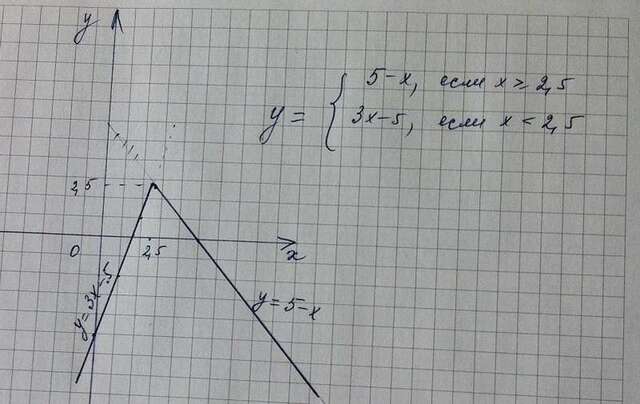 y
2,5
0
2,5
x
y = 3x-5
y = 5-x
y = { 5-x, если x ≥ 2,5
3x-5, если x < 2,5